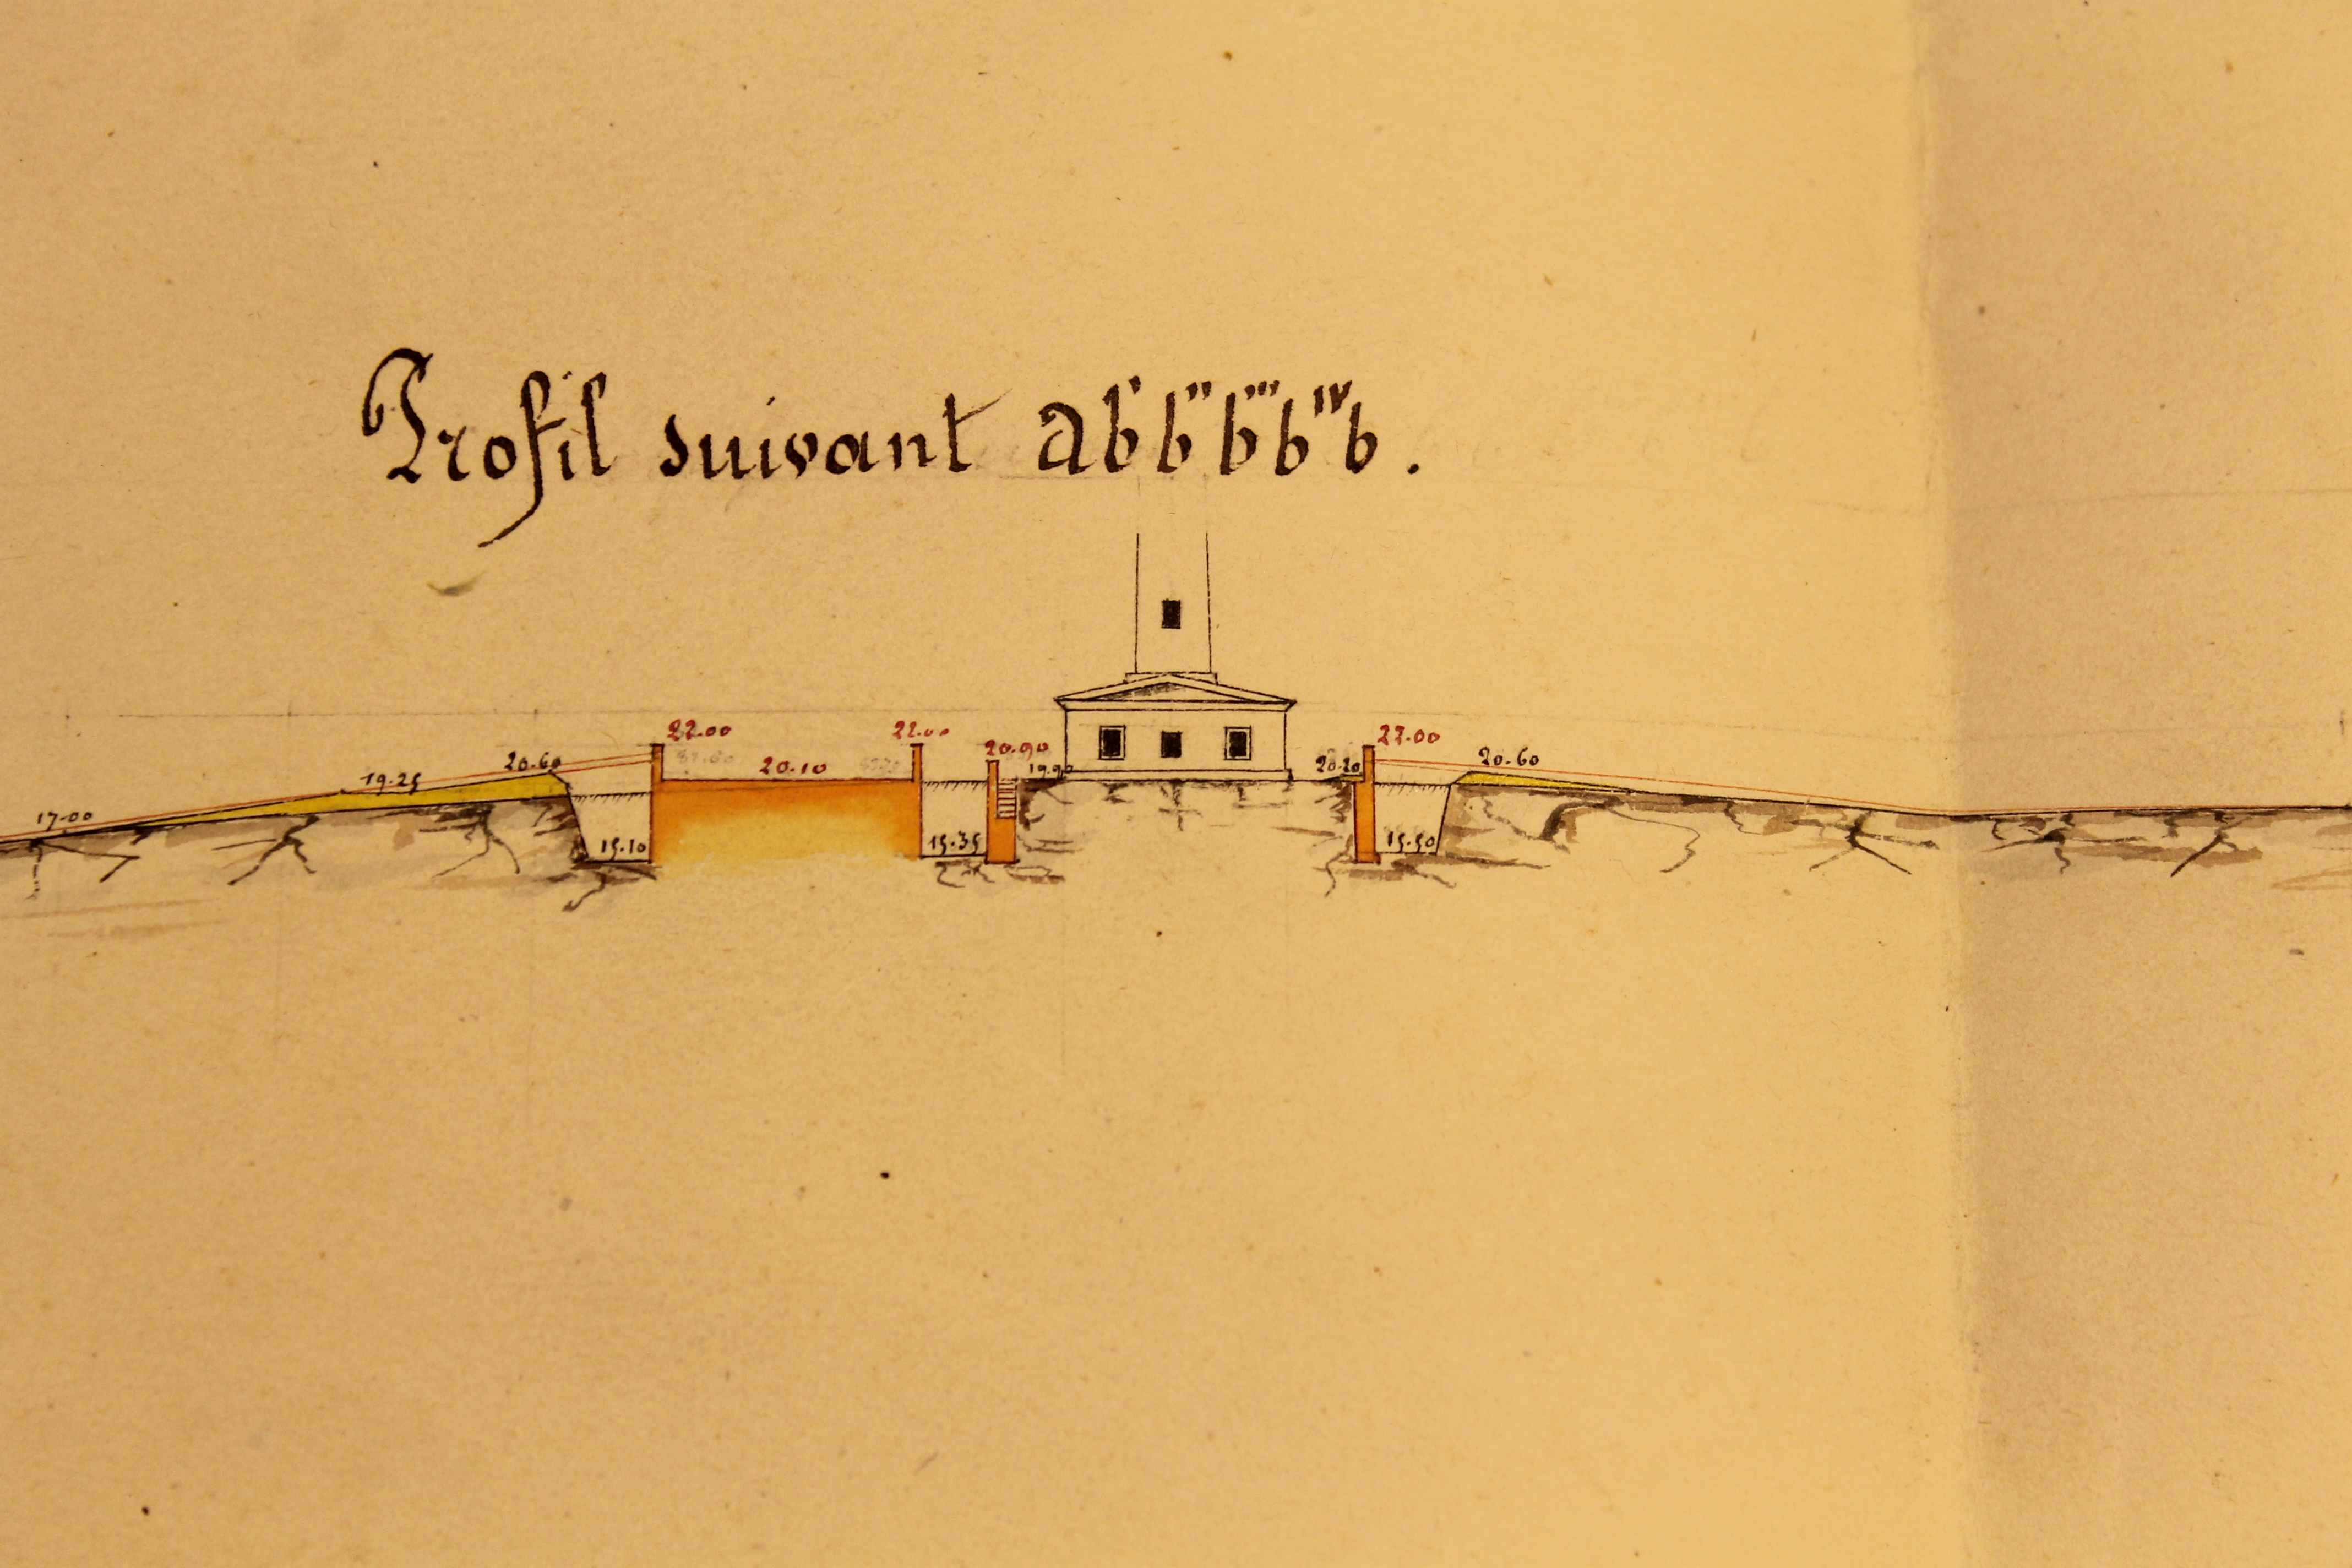 Profil suivant ab'b"b'''bᴵⱽb.
22.00
22.00
20.90
22.00
20.60
20.10
20.20
20.60
19.25
17.00
15.10
15.35
15.50